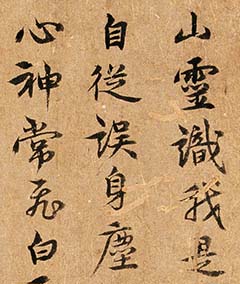 山靈識我是
自從誤身塵
心神常飛白